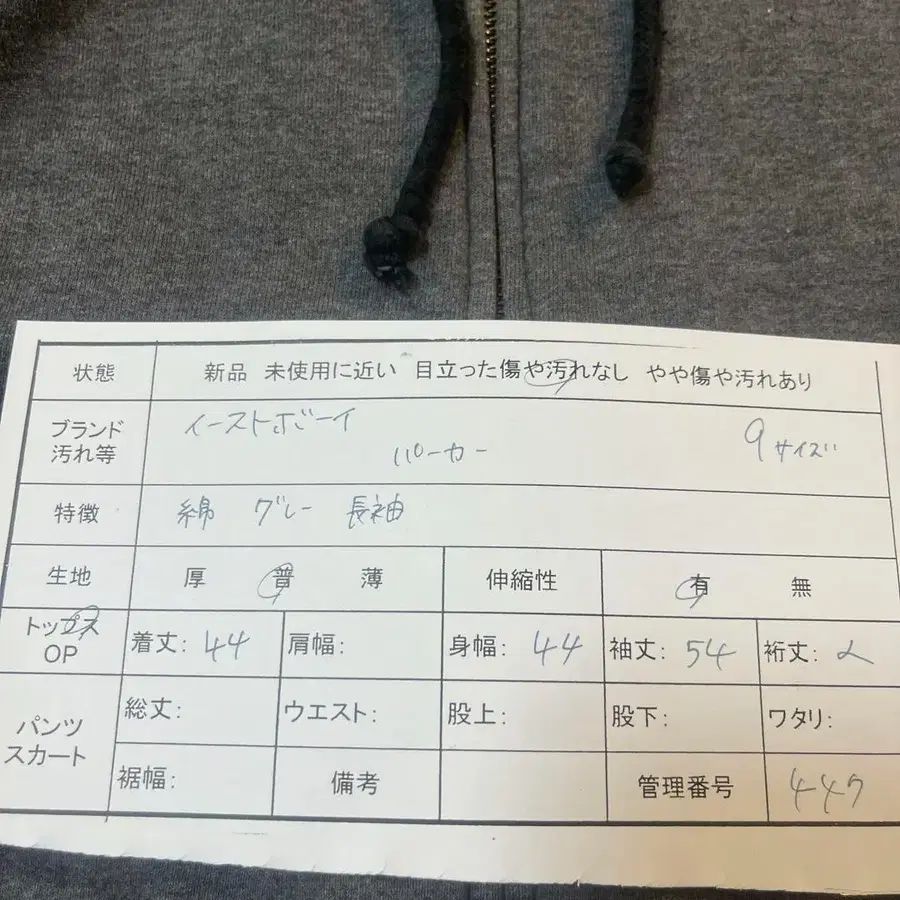 状態 新品 未使用に近い 目立った傷や汚れなし やや傷や汚れあり
ブランド
汚れ等
イーストボーイ
パーカー 9サイズ
特徴 綿 グレー 長袖
生地 厚 普 薄 伸縮性 有 無
トップス
OP
着丈: 44 肩幅: 身幅: 44 袖丈: 54 裄丈:
パンツ
スカート
総丈: ウエスト: 股上: 股下: ワタリ:
裾幅: 備考 管理番号 447